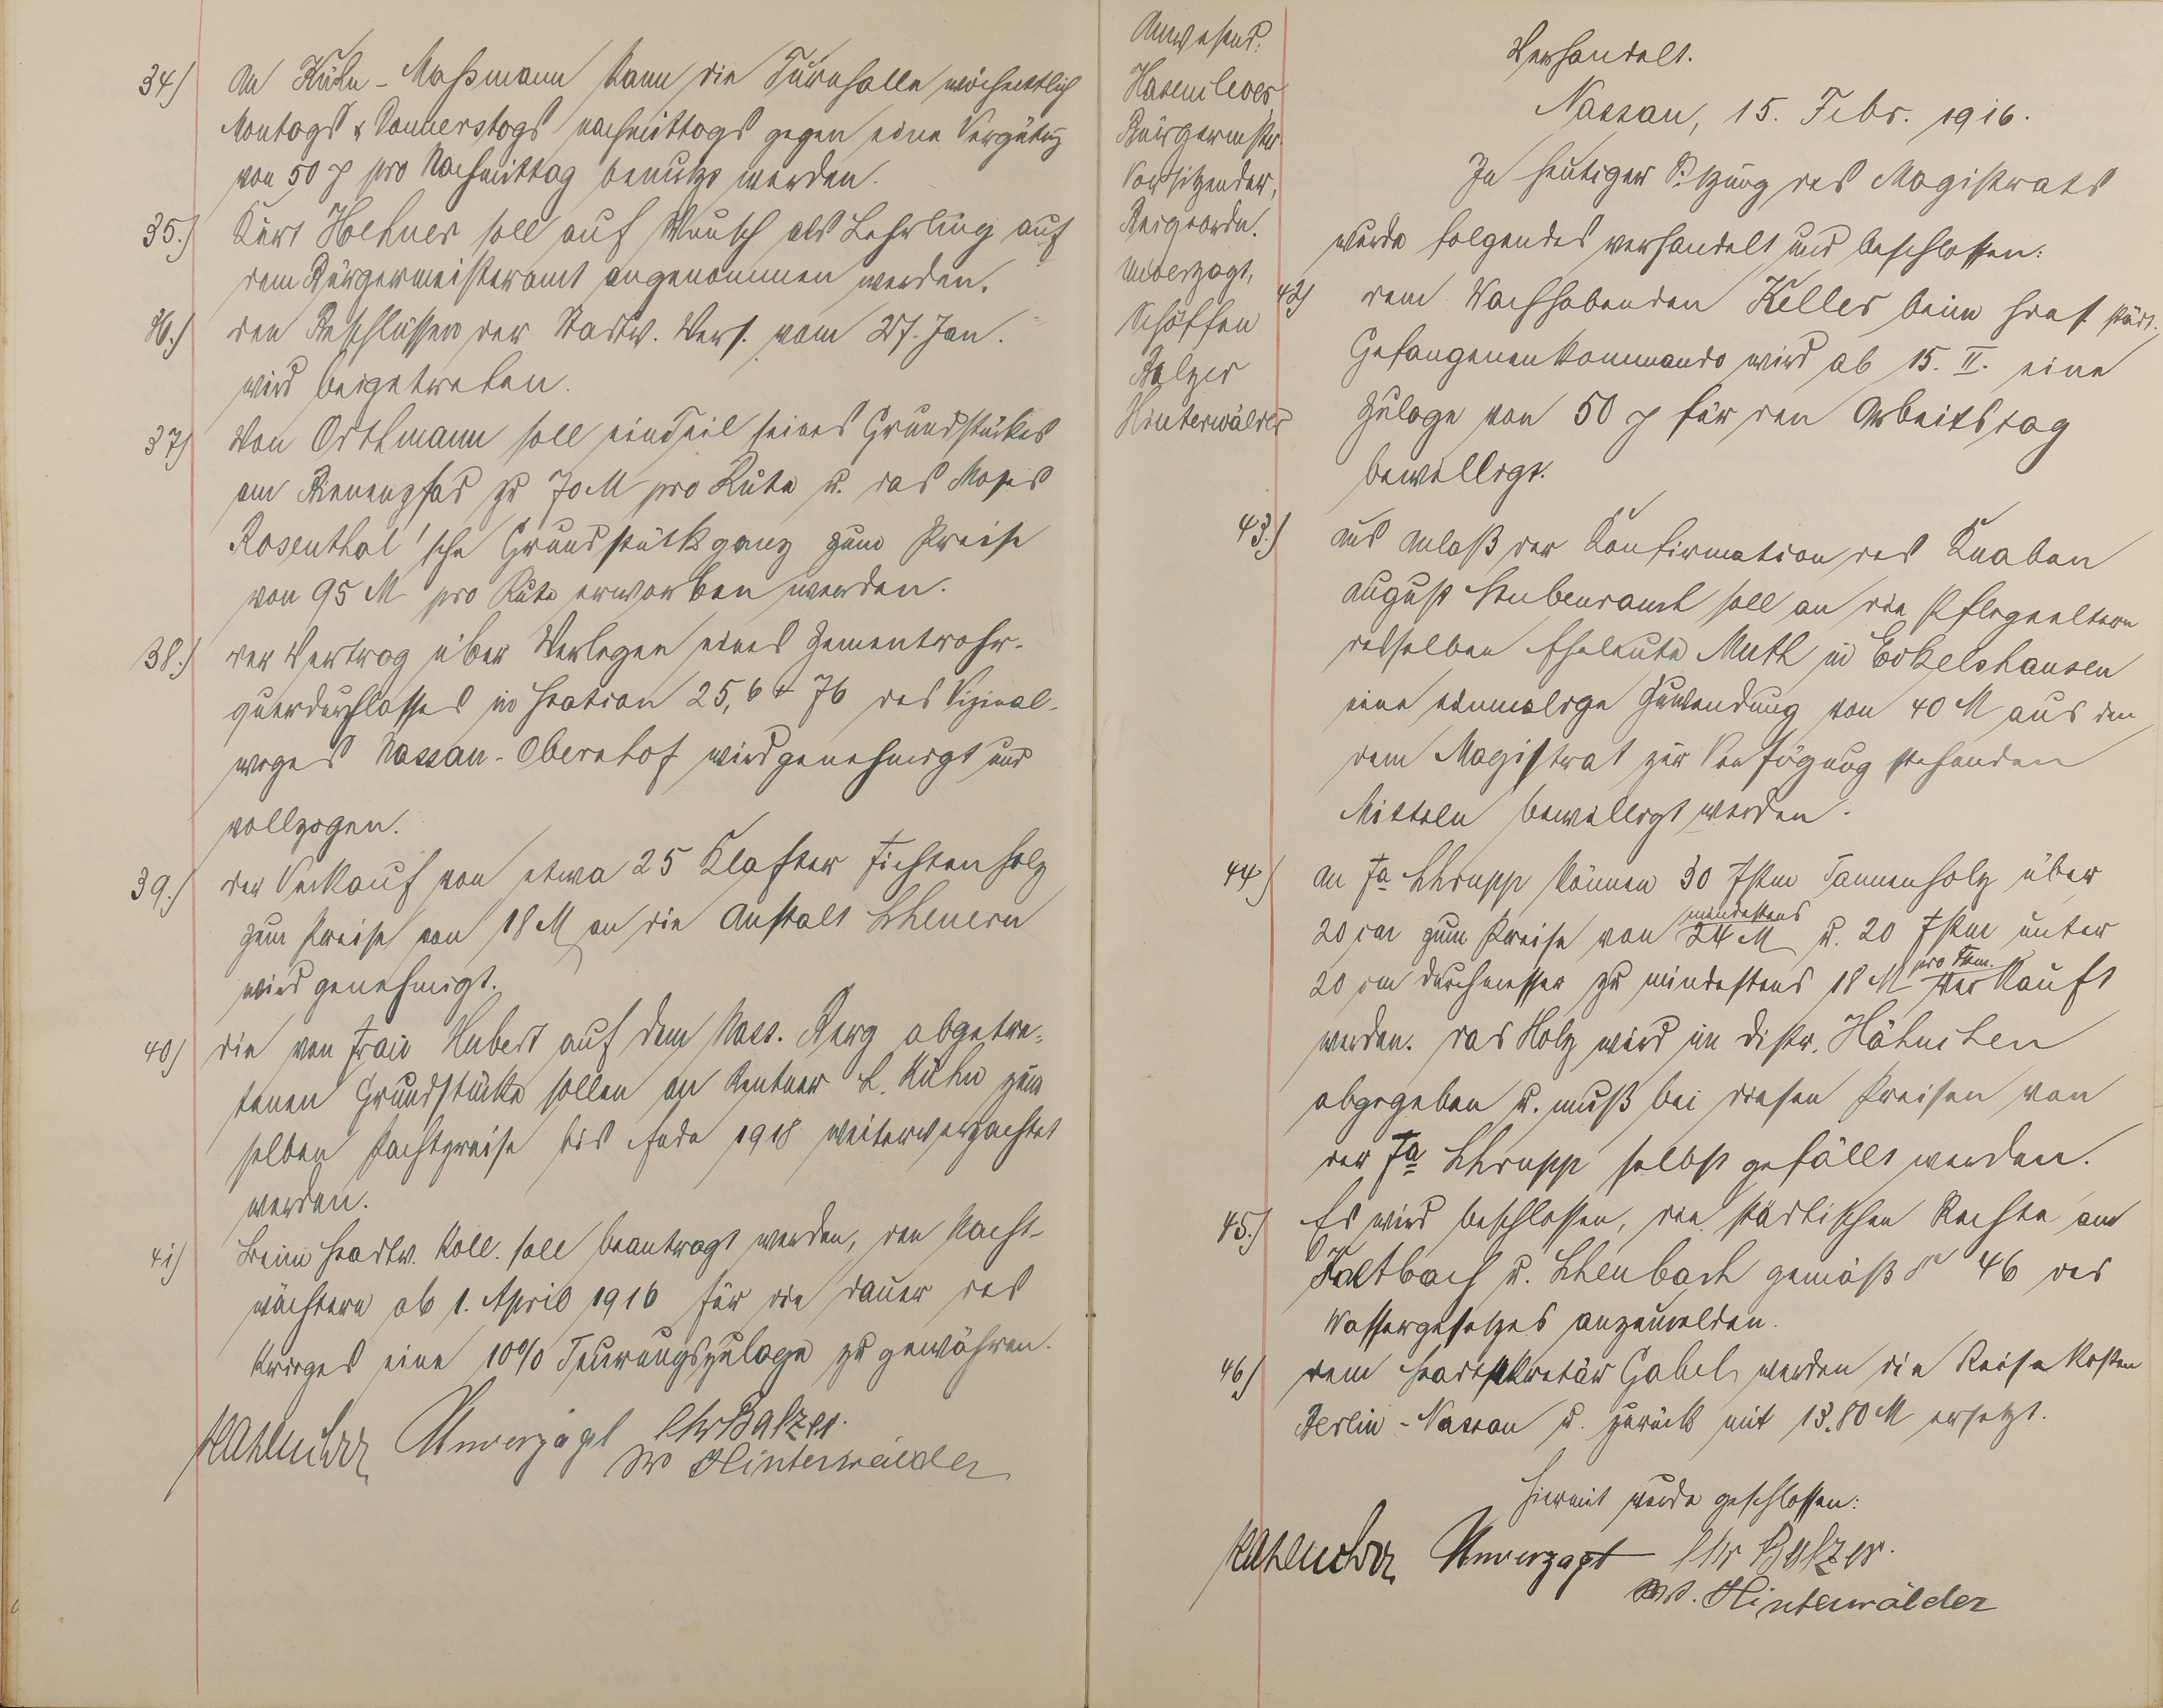 34) An Kühn-Maßmann kann die Turnhalle wöchentlich
Montags & Donnerstags nachmittags gegen eine Vergütg
von 50 ₰ pro Nachmittag benutzt werden.
35.) Kurt Hoehner soll auf Wunsch als Lehrling auf
dem Bürgermeisteramt angenommen werden.
36.) den Beschlüssen der Stadtv. Vers. vom 27. Jan.
wird beigetreten.
37) Von Orthmann soll ein Teil seines Grundstückes
am Bienenpfad zu 70 M pro Rute u. das Moses
Rosenthal'sche Grundstück ganz zum Preise
von 95 M pro Rute erworben werden.
38.) der Vertrag über Verlegen eines Zementrohr-
querdurchlasses in Station 25,6 + 76 des Vizinal-
weges Nassau-Obernhof wird genehmigt und
vollzogen.
39.) der Verkauf von etwa 25 Klafter Fichtenholz
zum Preise von 18 M an die Anstalt Scheuern
wird genehmigt.
40) die von Frau Hubert auf dem Nass. Berg abgetre-
tenen Grundstücke sollen an Rentner L. Kuhn zum
selben Pachtpreise bis Ende 1918 weiterverpachtet
werden.
41) Beim Stadtv. Koll. soll beantragt werden, den Nacht-
wächtern ab 1. April 1916 für die Dauer des
Krieges eine 10% Teuerungszulage zu gewähren.
Hasenclever Unverzagt Chr Balzer.
Hinterwälder
Anwesend:
Hasenclever,
Bürgermstr.
Vorsitzender,
Beigeordn.
Unverzagt,
Schöffen
Balzer
Hinterwälder
Verhandelt.
Nassau, 15. Febr. 1916.
In heutiger Sitzung des Magistrats
wurde folgendes verhandelt und beschlossen:
42) dem Wachhabenden Keller beim hies. städt.
Gefangenenkommando wird ab 15. II. eine
Zulage von 50 ₰ für den Arbeitstag
bewilligt.
43.) aus Anlaß der Konfirmation des Knaben
August Stubenrauch soll an die Pflegeeltern
desselben Eheleute Muth in Eckelshausen
eine einmalige Zuwendung von 40 M aus den
dem Magistrat zur Verfügung stehenden
Mitteln bewilligt werden.
44) An Fa Schrupp können 30 Fstm Tannenholz über
20 cm zum Preise von mindestens 24 M u. 20 Fstm unter
20 cm Durchmesser zu mindestens 18 M pro Fstm. verkauft
werden. Das Holz wird im Distr. Hähnchen
abgegeben u. muß bei diesen Preisen von
der Fa Schrupp selbst gefällt werden.
45.) Es wird beschlossen, die städtischen Rechte am
Kaltbach u. Scheubach gemäß § 46 des
Wassergesetzes anzumelden.
46) dem Stadtsekretär Gabel werden die Reisekosten
Berlin-Nassau u. zurück mit 13.80 M ersetzt.
Hiermit wurde geschlossen:
Hasenclever Unverzagt Chr Balzer.
Hinterwälder